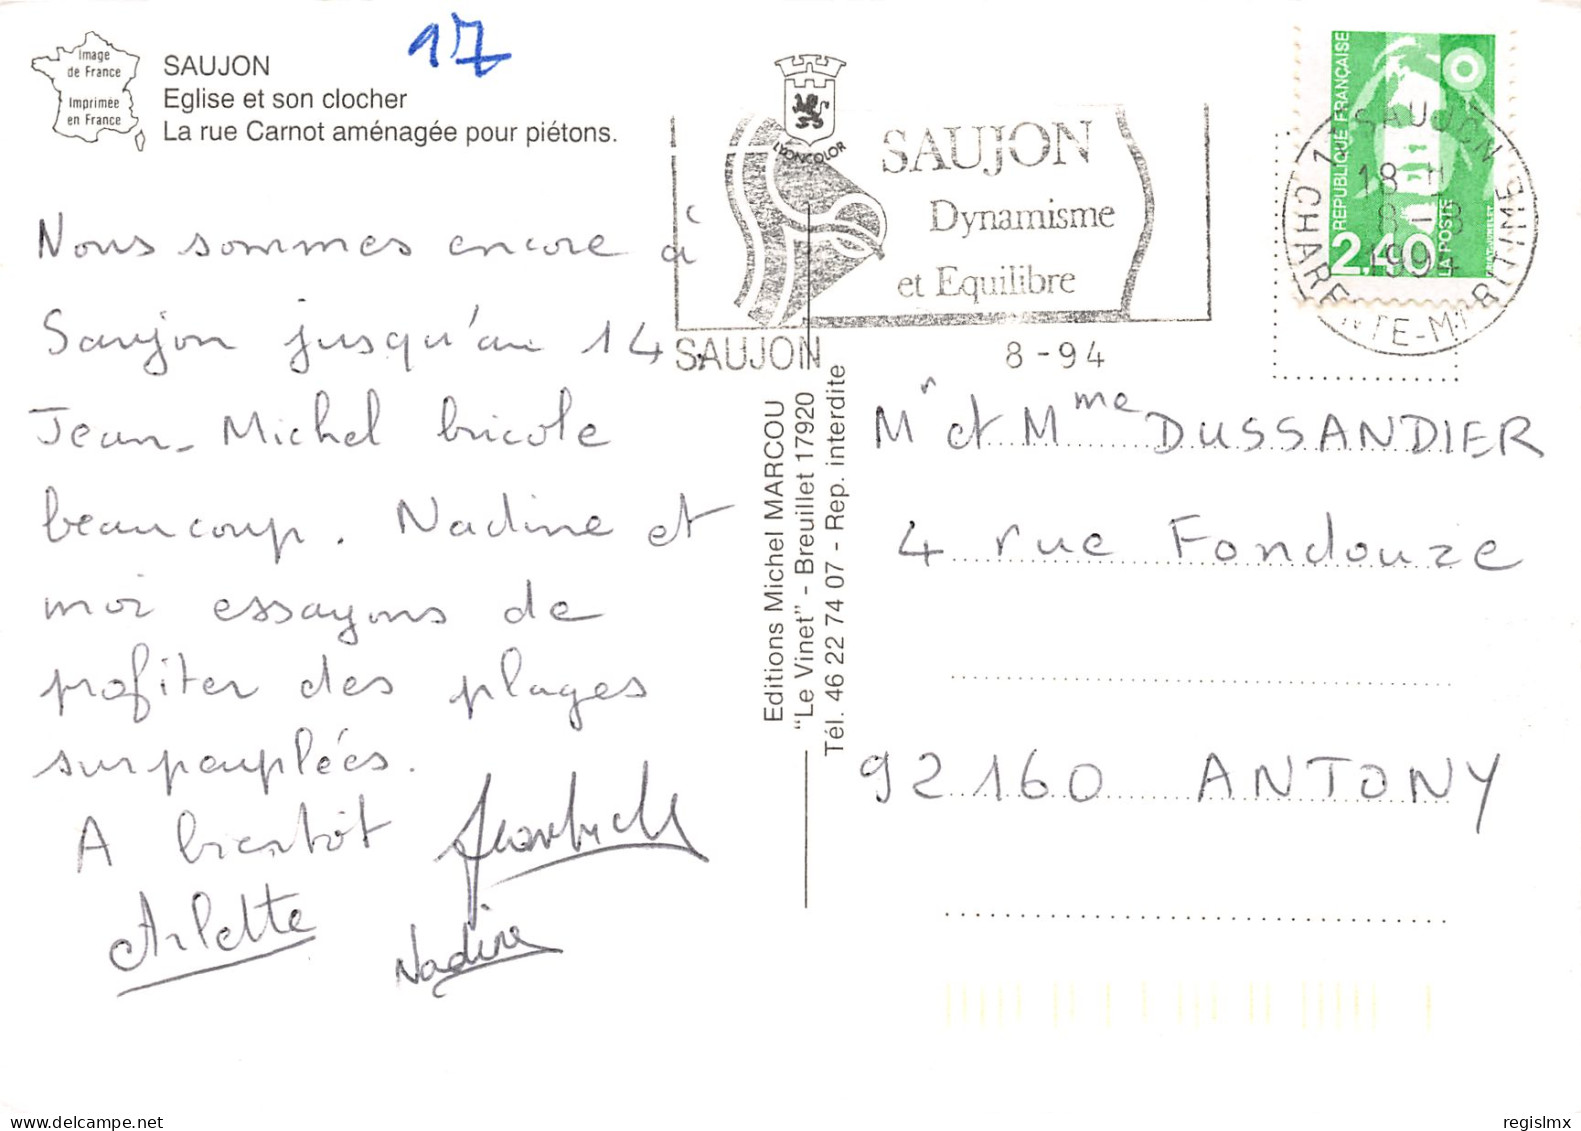 Image
de France
Imprimée
en France
SAUJON
Eglise et son clocher
La rue Carnot aménagée pour piétons.
17
LYONCOLOR
SAUJON
Dynamisme
et Equilibre
SAUJON
8-94
REPUBLIQUE FRANÇAISE
2,40
LA POSTE
SAUJON
18 H
8-8
1994
CHARENTE-MARITIME
Nous sommes encore à
Saujon jusqu'au 14.
Jean-Michel bricole
beaucoup. Nadine et
moi essayons de
profiter des plages
surpeuplées.
A bientôt
Arlette
Nadine
Editions Michel MARCOU
"Le Vinet" - Breuillet 17920
Tél. 46 22 74 07 - Rep. interdite
Mr et Mme DUSSANDIER
4 rue Fondouze
92160 ANTONY
regislmx